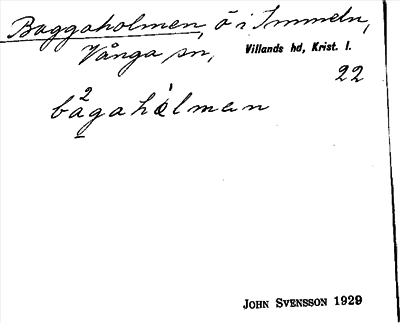 Baggaholmen, ö i Immeln,
Vånga sn, Villands hd, Krist. l.
22
bàgahòlmen
John Svensson 1929